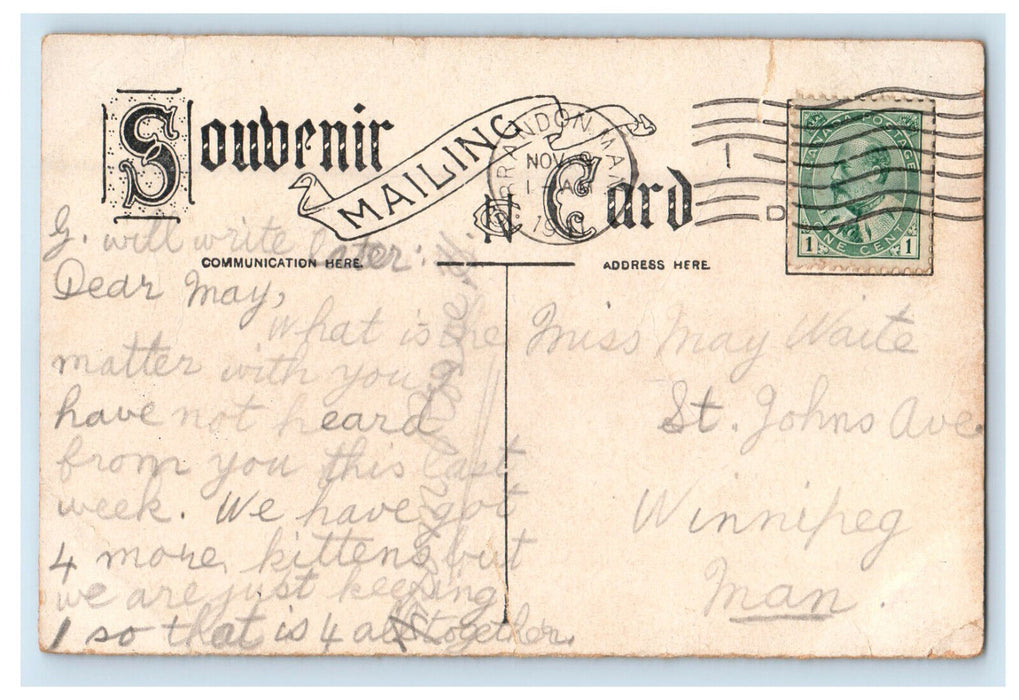 Souvenir MAILING Card
BRANDON MAN
NOV
1
D
CANADA POSTAGE
1 ONE CENT 1
G. will write later.
COMMUNICATION HERE
ADDRESS HERE
Dear May,
What is the
matter with you
have not heard
from you this last
week. We have got
4 more kittens but
we are just keeping
1 so that is 4 altogether.
Miss May Waite
St. Johns Ave.
Winnipeg
Man.